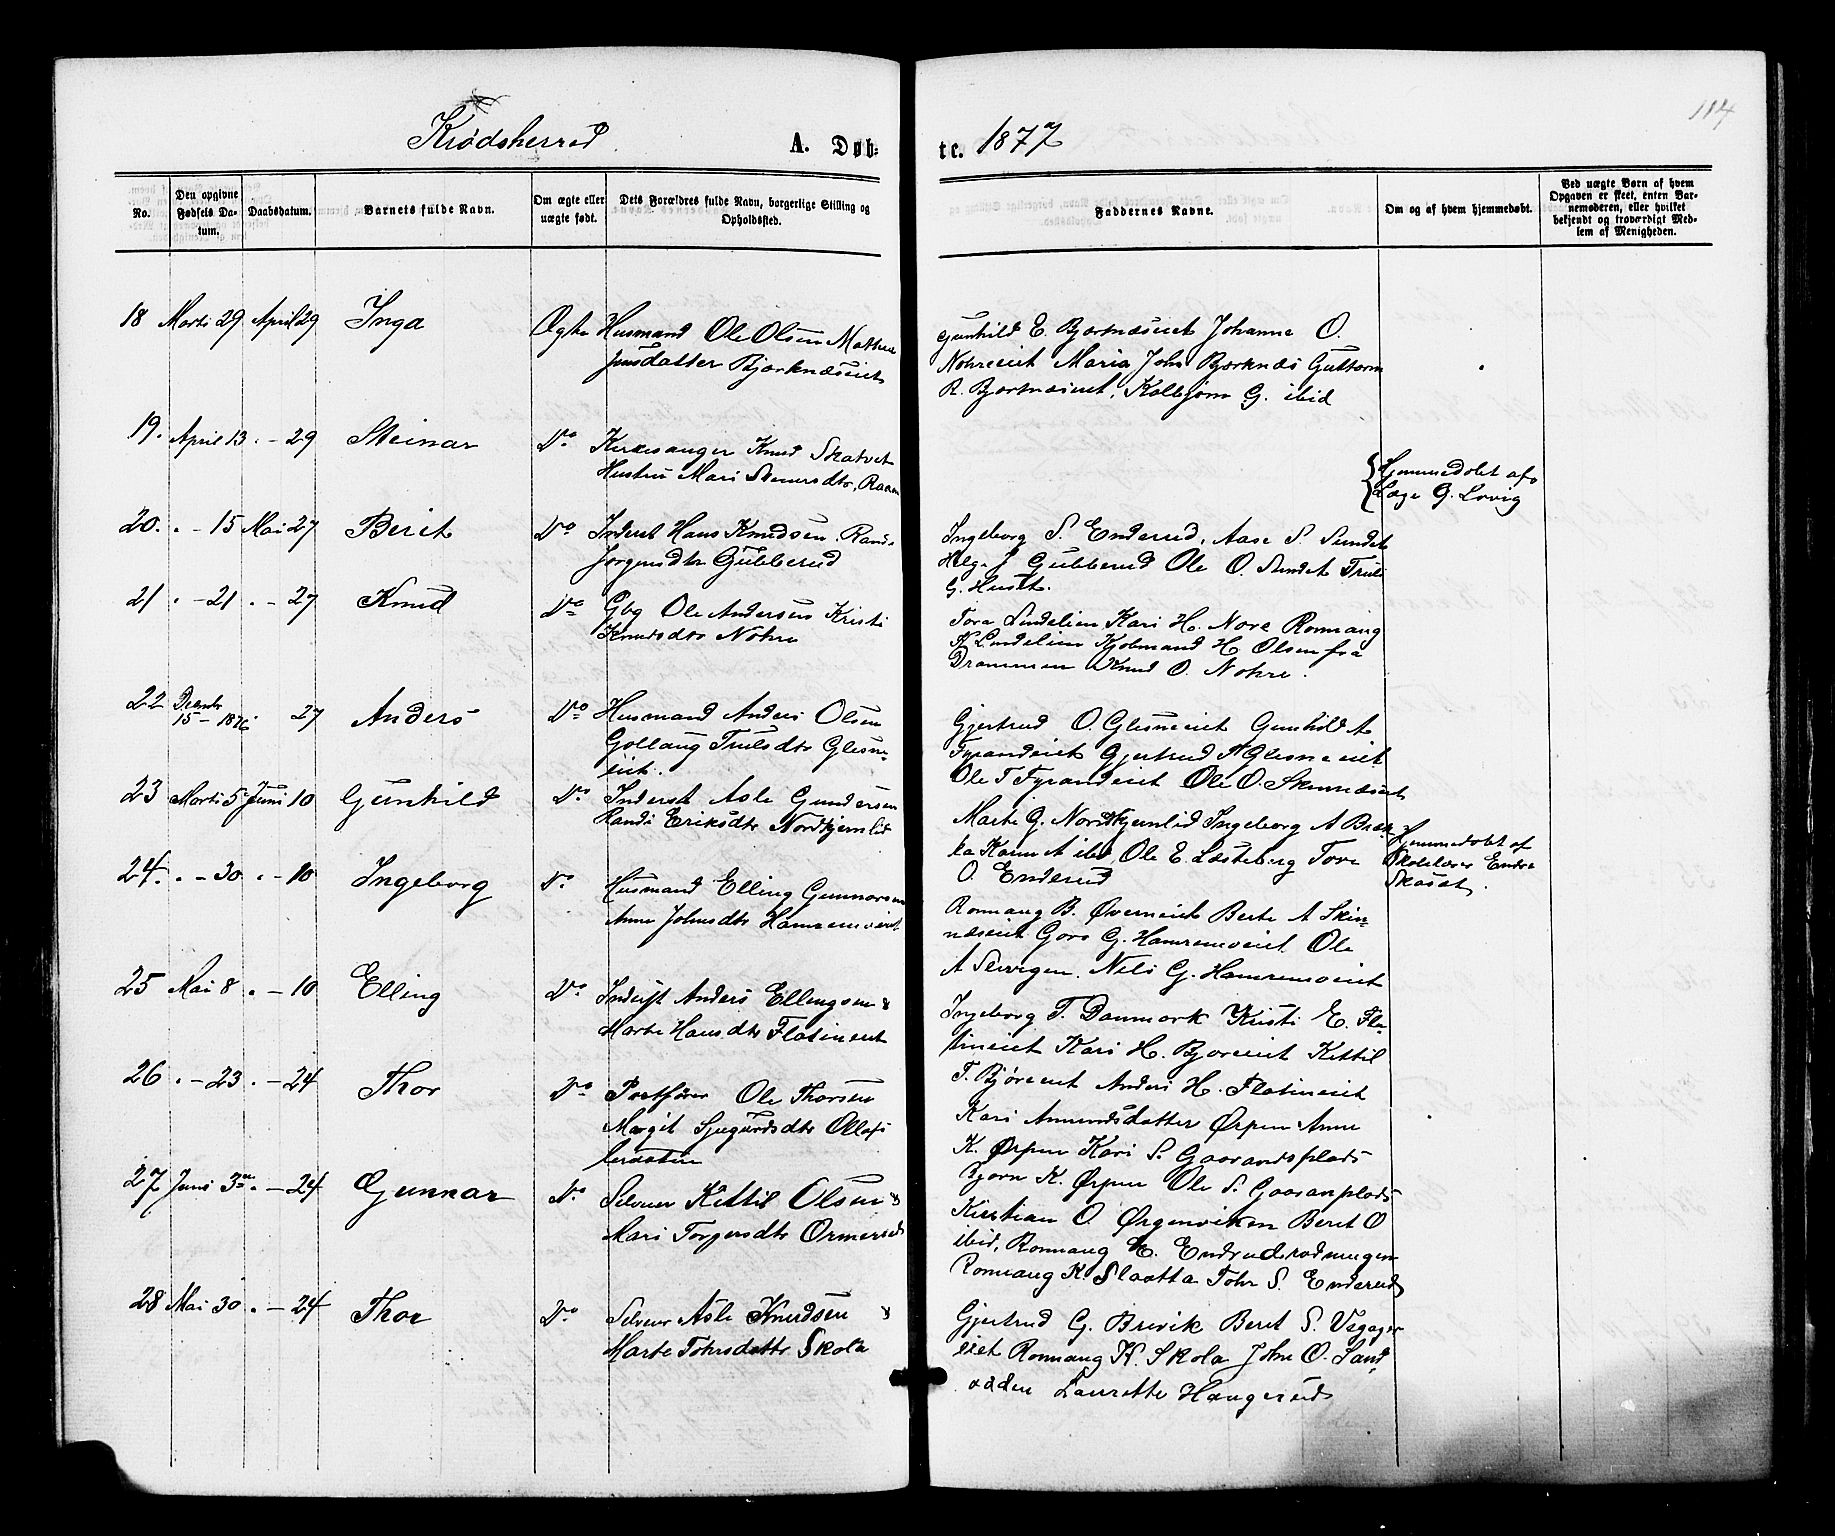 114
Krødsherred A. Døb-
te. 1877
No.
Den opgivne Fødsels Da-tum.
Daabsdatum.
Barnets fulde Navn.
Om ægte eller uægte født.
Dets Forældres fulde Navn, borgerlige Stilling og Opholdssted.
Faddernes Navne.
Om og af hvem hjemmedøbt.
Ved uægte Børn af hvem Opgaven er skeet, enten Bar-nemoderen, eller hvilket bekjendt og troværdigt Med-lem af Menigheden.
18 Marts 29 April 29 Inga Ægte Husmand Ole Olsen Mathea
Jensdatter Bjørknæseiet
Gunhild E. Bjørknæseiet Johanne O.
Nohreeiet Maria John Bjørknæs Guttorm
R. Bjørknæseiet, Kolbjørn G. ibid
19. April 13 . - 29 Steinar Do Kirkesanger Knud Skatvet
Hustru Mari Stenersdtr, Raaen
Hjemmedøbt af
Læge G. Lovig
20. . - 15 Mai 27 Berit Do Inderst Hans Knudsen Randi
Jørgensdtr Gubberud
Ingeborg S. Enderud, Aase S. Sundet
Helge J Gubberud Ole O. Sundet Truls
G. Hustt.
21 . - 21 . - 27 Knud Do Gbg Ole Andersen Kristi
Knudsdtr Nohre
Tora Lindelien Kari H. Nore Ronnaug
K Lindelien Kjøbmand H Olsen fra
Drammen Knud O. Nohre.
22 Decembr 15 - 1876 27 Anders Do Husmand Anders Olsen
Gollaug Trulsdtr Glesne-
eiet.
Gjertrud O. Glesneeiet Gunhild A
Fyrandeiet Gjertrud A Glesneeiet
Ole T Fyrandeiet Ole O. Skinnæseiet
23 Marts 5 Juni 10 Gunhild Do Inderst Asle Gundersen
Randi Eriksdtr Nordkjernlid
Marte G. Nordkjernlid Ingeborg A Bræk-
ka Karen A ibid, Ole E. Læsteberg Tore
O. Enderud
Hjemmedøbt af
Skolelærer Endre
Skaset.
24. . - 30 . - 10 Ingeborg Do Husmand Elling Gunnarsen
Anne Johnsdtr Hamremoeiet
Ronnaug B. Øverneiet Berte A Skin-
næseiet Goro G. Hamremoeiet Ole
A Slevigen. Nils G. Hamremoeiet
25 Mai 8 . - 10 Elling Do Inderst Anders Ellingsen &
Marte Hansdtr Flatineiet
Ingeborg T. Danmark Kristi E. Fla-
tineiet Kari H. Bjøreeiet Kittil
T. Bjøreeiet Anders H. Flatineiet
26 . - 23 . - 24 Thor Do Postfører Ole Thorsen
Margit Sjugurdsdtr Ollefs
Kari Amundsdatter Ørpen Anne
K. Ørpen Kari S. Gaarandsplads
Bjørn K. Ørpen Ole S. Gaaranplads
27 Juni 3 . - 24 Gunnar Do Selveier Kittil Olsen &
Mari Torgersdtr Ormerud
Kristian O. Ørgenviken Beret O
ibid, Ronnaug E. Endrudrødningen
Ronnaug K. Slaatta Tohr S. Enderud
28 Mai 30 . - 24 Thor Do Selveier Asle Knudsen &
Marte Tohrsdattr Skola
Gjertrud G. Brevik Beret S. Vegager
eiet Ronnaug K. Skola John O. Sand
odden Laurette Haugerud